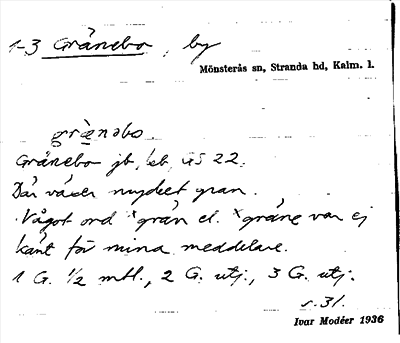 1-3 Grånebo, by
Mönsterås sn, Stranda hd, Kalm. l.
grænəbo.
Grånebo jb, kb, GS 22.
Där växer mycket gran.
Något ord ˣgrån el. ˣgråne var ej
känt för mina meddelare.
1 G. 1/2 mtl., 2 G. utj., 3 G. utj.
s. 31.
Ivar Modéer 1936